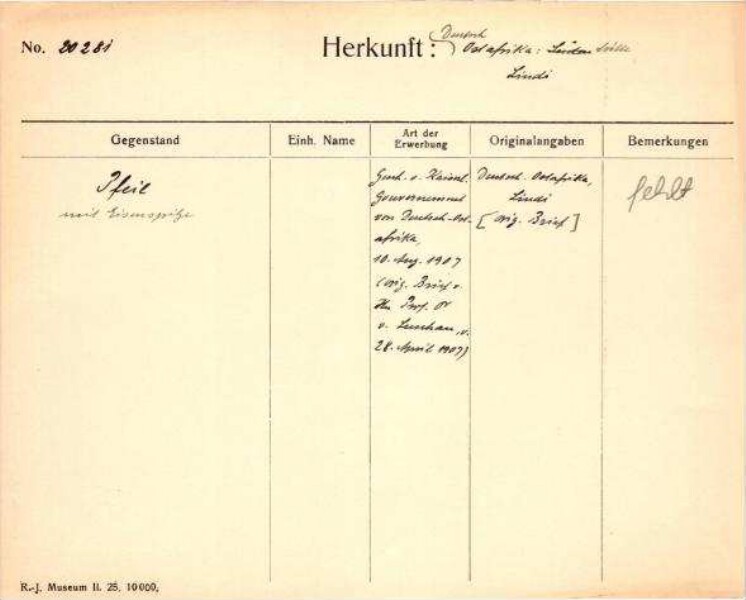 No. 20281
Herkunft: Deutsch
Ostafrika: Süden
Lindi
Gegenstand
Einh. Name
Art der Erwerbung
Originalangaben
Bemerkungen
Pfeil
mit Eisenspitze
Gesch. v. Kaiserl.
Gouvernement
von Deutsch-Ost-
afrika,
10. Aug. 1907
(orig. Brief v.
Hn Prof. Dr
v. Luschan, v.
28. April 1907)
Deutsch. Ostafrika,
Lindi
[orig. Brief]
fehlt
R.-J. Museum II. 25. 10000.